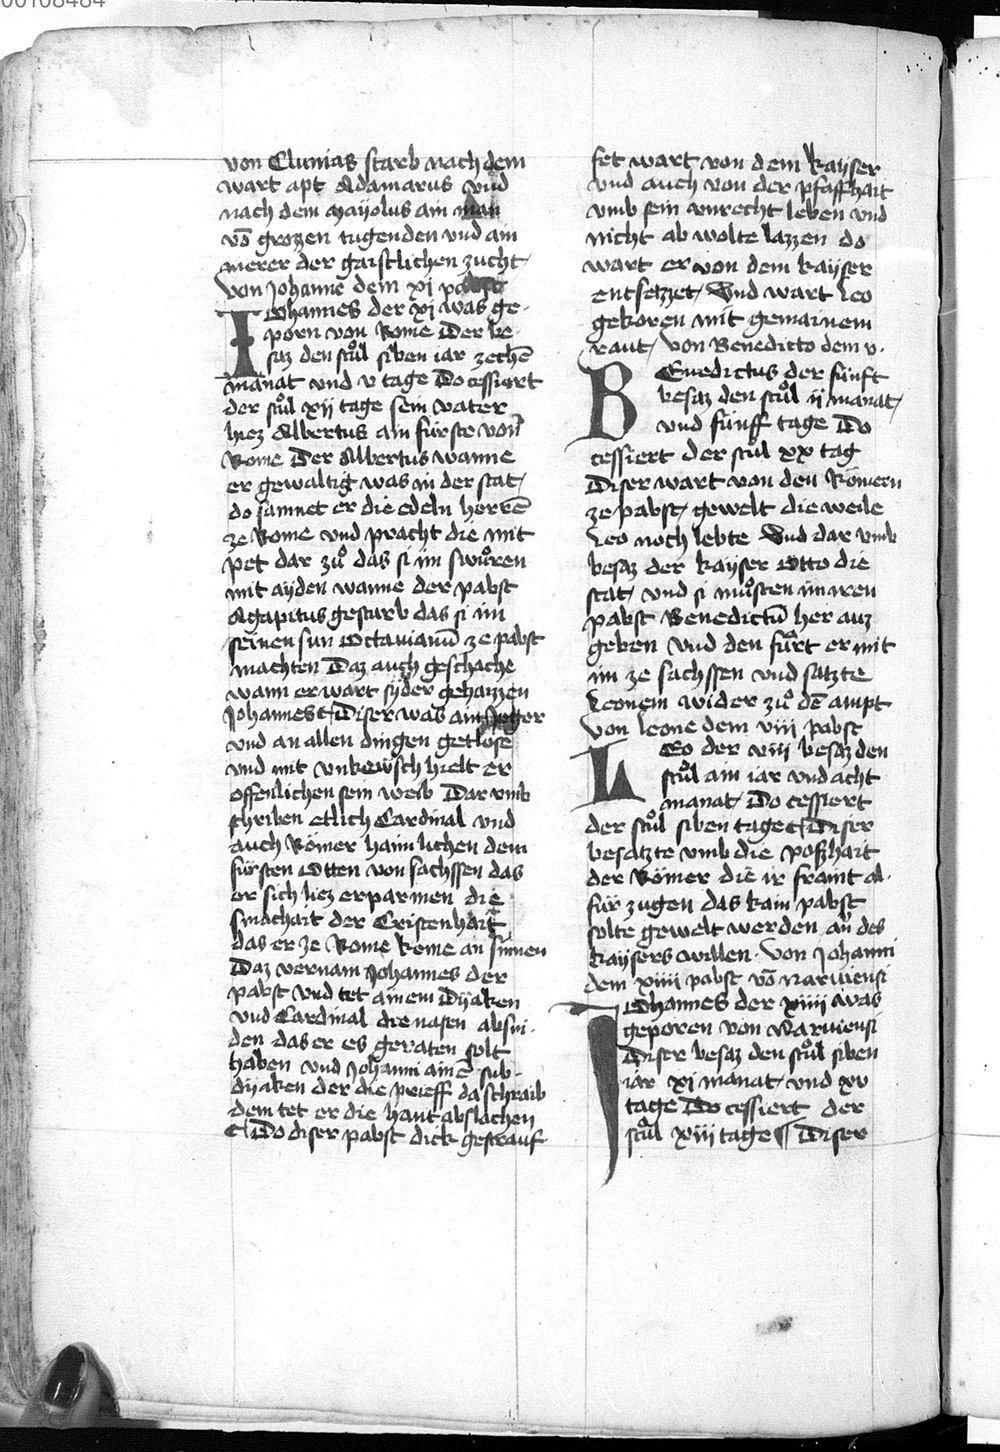 00108484
von Clunias starb nach dem
wart apt Adamarus vnd
nach dem Mayolus ain man
vō grozzen tugenden vnd ain
merer der gaistlichen zucht
von Johanne dem xi pabst
Iohannes der xj was ge-
porn von Rome Der be-
saz den stůl siben iar zechē
manat vnd v tage Do cessiert
der stůl xij tage sein vater
hiez Albertus ain fürste von
Rome Der Albertus wanne
er gewaltig was in der stat
do samnet er die edeln herrē
ze Rome vnd pracht die mit
pet dar zů das si im swůren
mit ayden wanne der pabst
Agapitus gesturb das si im
seinen sun Octauianū ze pabst
machten Daz auch geschache
wann er wart syder gehaizzen
Johannes Diser was ain Jeger
vnd an allen dingen getlose
vnd mit vnkewsch hielt er
offenlichen sein weib Dar vmb
schriben etlich Cardinal vnd
auch Römer haimlichen dem
fürsten Otten von sachssen das
er sich liez erparmen die
smachait der Cristenhait
das er ze Rome keme an sumen
Daz vernam Johannes der
pabst vnd tet ainem Dyaken
vnd Cardinal die nasen absni-
den das er es geraten solt
haben vnd Johanni ainē sub-
dyaken der die prieff da schraib
dem tet er die hant abslachen
Do diser pabst dick gestrauf
fet wart von dem kayser
vnd auch von der pfaffhait
vmb sein vnrecht leben vnd
nicht ab wolte lazzen do
wart er von dem kayser
entsetzzet Vnd wart Leo
gekoren mit gemainem
raut von Benedicto dem v.
BEnedictus der fünft
besaz den stůl ij manat
vnd fünff tage Do
cessiert der stul xx tag
Diser wart von den Römern
ze pabst gewelt die weile
Leo noch lebte Vnd dar vmb
besaz der kayser Otto die
stat vnd si můsten im iren
pabst Benedictū her auz
geben vnd den fůrt er mit
im ze sachssen vnd satzte
Leonem wider zů dē ampt
von leone dem viij pabst
LEo der viij besaz den
stůl ain iar vnd acht
manat Do cessiert
der stůl siben tage Diser
besatzte vmb die poßhait
der Römer die ir framt al-
für zugen das kain pabst
solte gewelt werden an des
kaysers willen. von Johanni
dem xiiij pabst vō Naruiensi
Iohannes der xiiij was
geporen von Naruiensi
Diser besaz den stůl siben
iar xj manat vnd xv
tage Do cessiert der
stůl xiij tage ¶ Diser